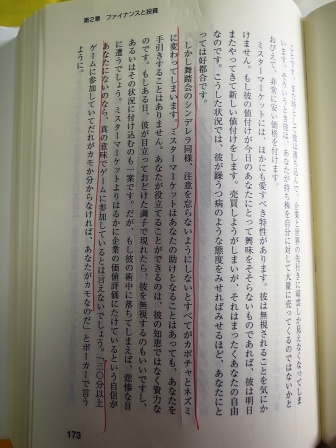 第2章 ファイナンスと投資
おびえて、非常に安い価格を付けます。
ミスターマーケットには、ほかにも愛すべき特性があります。彼は無視されることを気にか
けません。もし彼の値付けが今日のあなたにとって興味をそそらないものであれば、彼は明日
またやってきて新しい値付けをします。売買しようがしまいが、それはまったくあなたの自由
なのです。こうした状況では、彼が躁うつ病のような態度をみせればみせるほど、あなたにと
っては好都合です。
しかし舞踏会のシンデレラ同様、注意を怠らないようにしないとすべてがカボチャとネズミ
に変わってしまいます。ミスターマーケットはあなたの助けとなることはあっても、あなたを
手引きすることはありません。あなたが役立てることができるのは、彼の知恵ではなく資力な
のです。もしある日、彼が目立っておどけた調子で現れたら、彼を無視するのもいいですし、
あるいはその状況に付け込むのも一案です。だが、もし彼の術中に落ちてしまえば、悲惨な目
に遭うでしょう。ミスターマーケットよりはるかに企業の価値評価にたけているという自信が
あなたにないのなら、真の意味でゲームに参加しているとは言えないでしょう。「三〇分以上も
ゲームに参加していてだれがカモか分からなければ、あなたがカモなのだ」とポーカーで言う
ように。
173